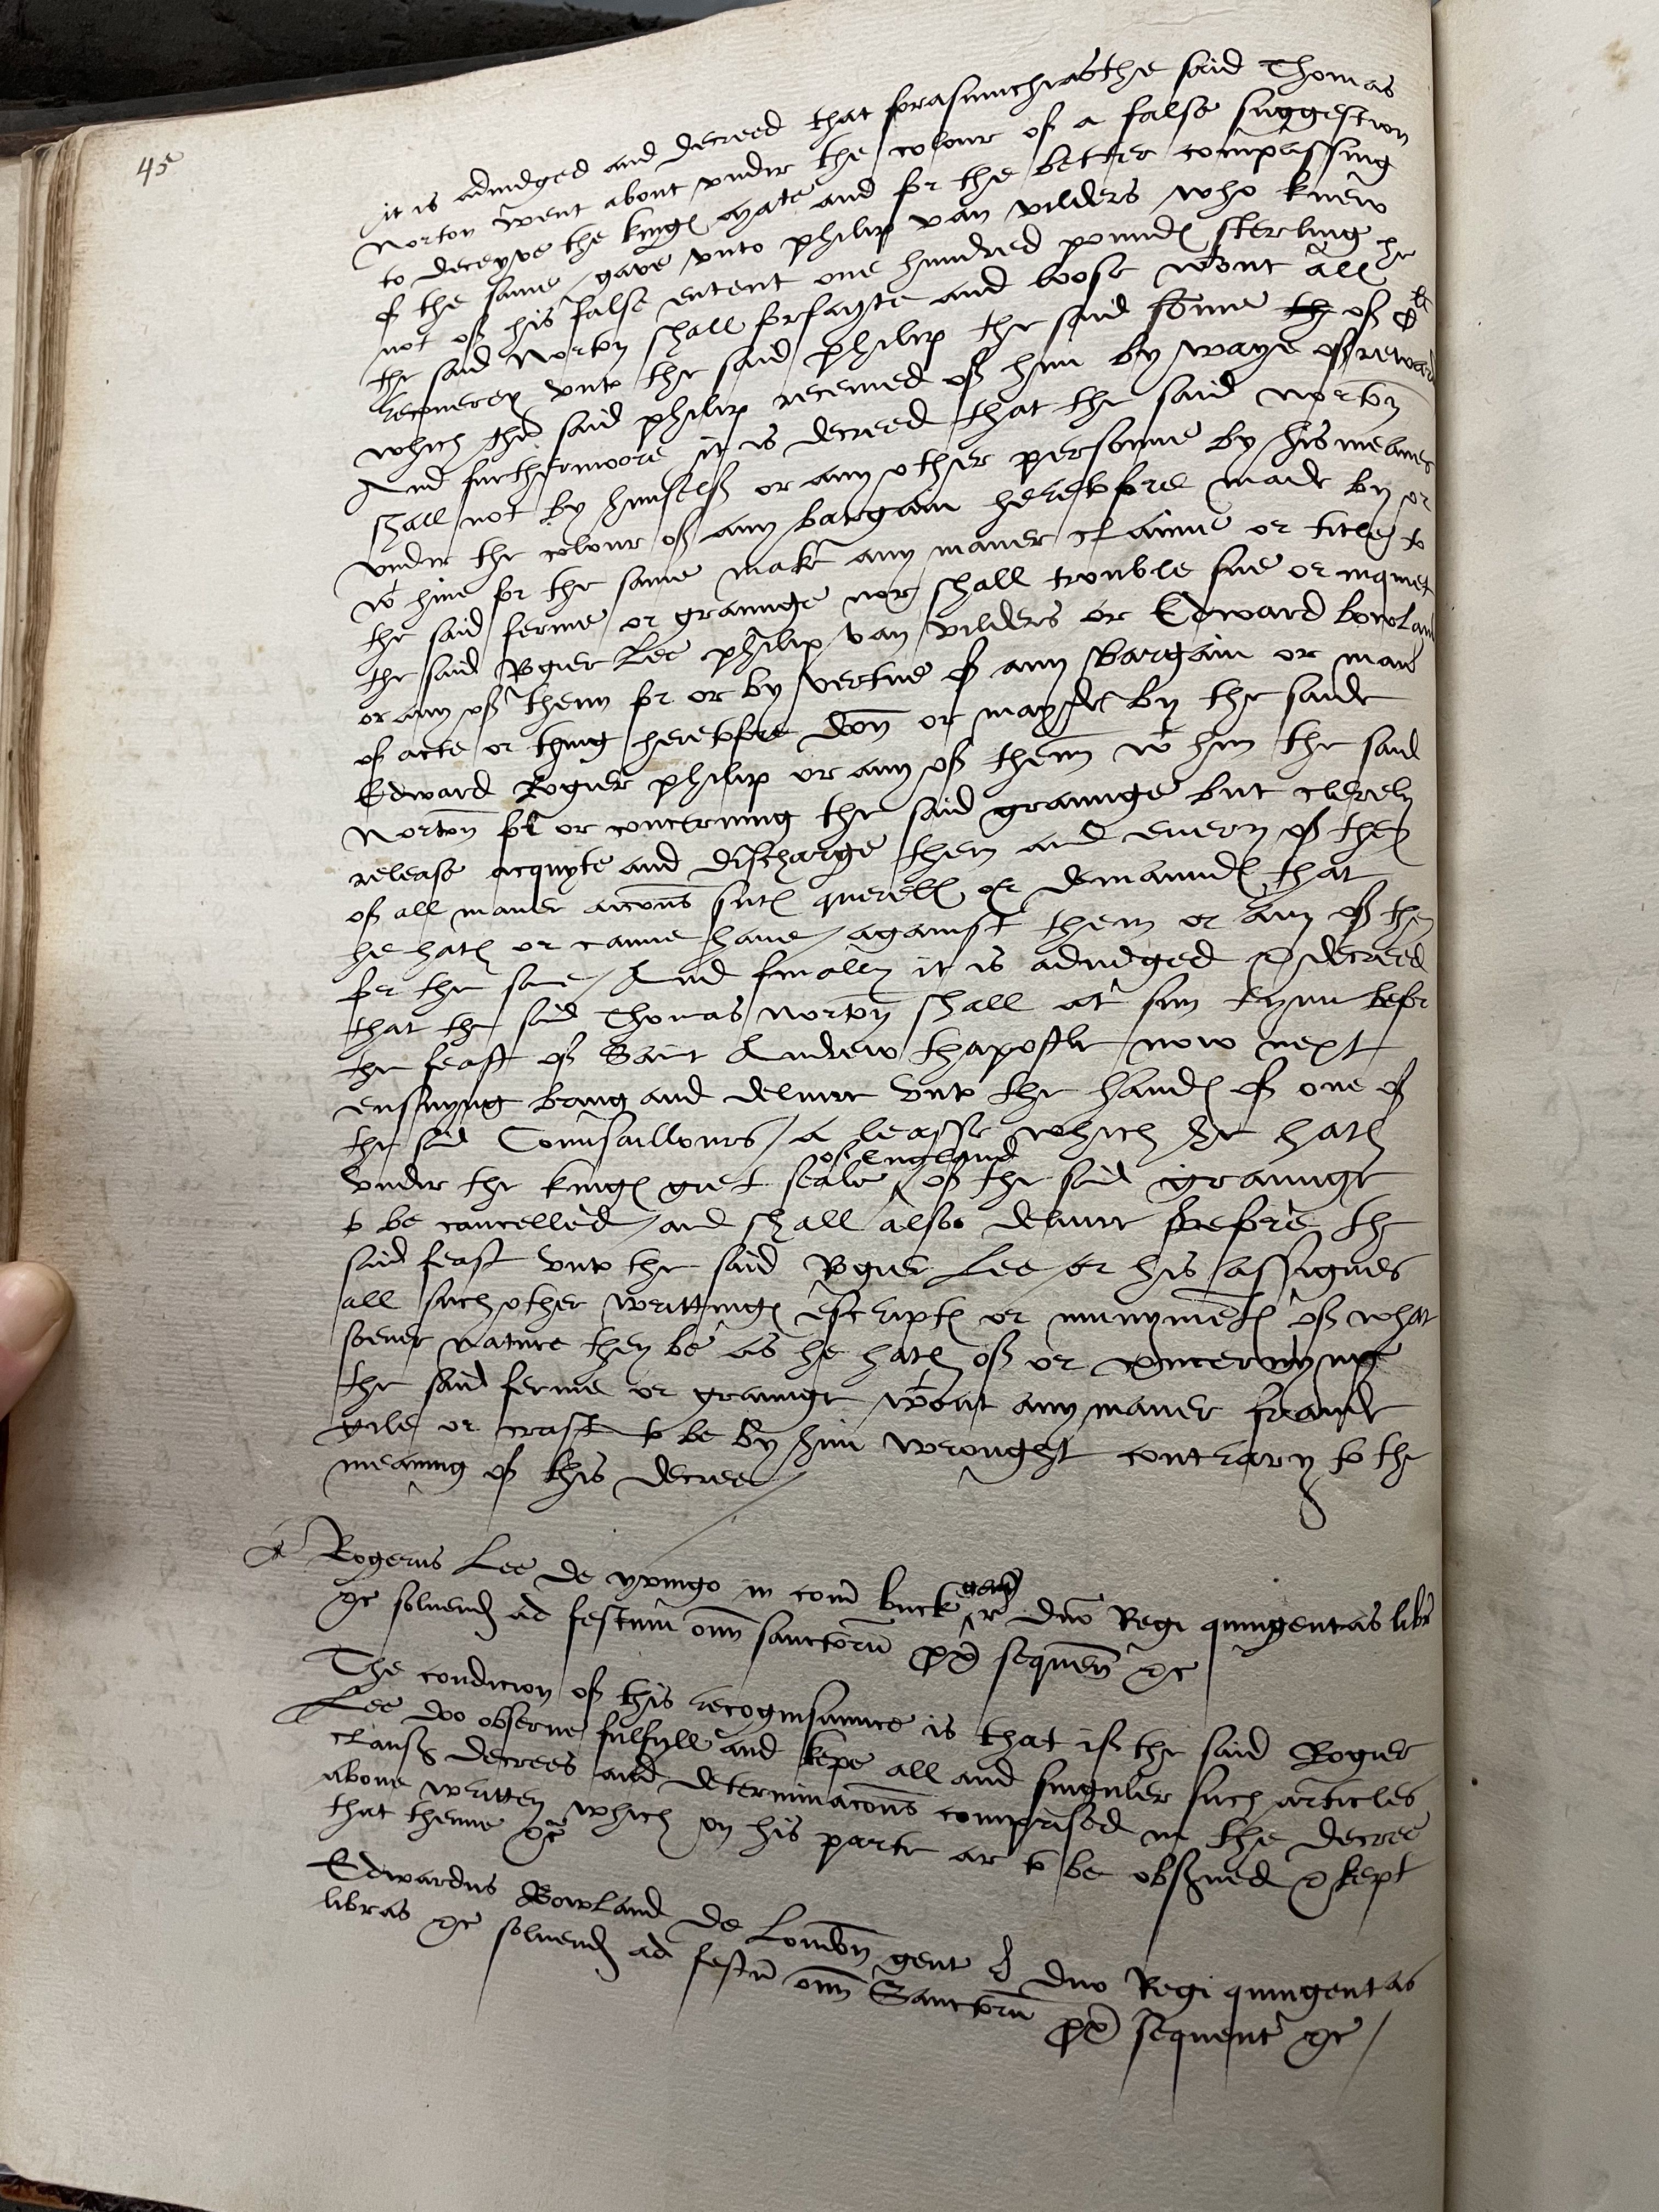 45
it is adiudged and decreed that forasmuche as the said Thomas
Norton went about vnder the colour of a false suggestion
to deceyve the kinges mate and for the better compassing
of the same / gave vnto philip van vilders who knew
not of his false entent one hundred poundes sterling he
the said Norton shall forfayte and loose wtout all
recouerey vnto the said philip the said somme of
which the said philip receiued of him by waye of reward
And furthermoore it is decreed that the said Norton
shall not by himself or any other personne by his meanes
vnder the colour of any bargain heretofore made by or
wt hime for the same make any maner clayme or title to
the said ferme or graunge nor shall trouble sue or inquiet
the said Rogier Lee philip van vilders or Edward bowland
or any of them for or by vertue of any bargain or maner
of acte or thing heretofore don or mayde by the saide
Edward Rogier philip or any of them wt him the said
Norton for or concerning the said graunge but clerely
release acquyte and discharge them and euery of them
of all maner accons sutes querelles or demaundes that
he hathe or canne haue / against them or any of them
for the same / And finally it is adiudged & decreed
that the said Thomas Norton shall at sum tyme before
the feast of Saint Andrew thapostle now next
ensuyng bring and deliuer vnto the handes of one of
the said Counsaillours / a leasse which he hathe
of England
vnder the kinges gret seale ^ of the said graunge
to be cancelled / and shall also deliuer before the
said feast vnto the said Rogier Lee or his assignes
all such other writtinges escriptes or munymentes of what
soeuer nature they be as he hathe of or concernynge
the said ferme or graunge wtout any maner fraude
gile or craft to be by him wrought contrary to the
meaning of this decree /
Rogerus Lee de in com buck gen r dno Regi quingentas libr
&c soluend ad festum omn sanctoru px sequen &c
The condicion of this recognisaunce is that if the said Rogier
Lee doo obserue fulfyll and kepe all and singuler such articles
clauses decrees and determinacons comprised in the decree
aboue written which on his parte ar to be obserued & kept
that thenne &c
Edwardus Bowland de London gent r dno Regi quingentas
libras &c soluend ad festu omn Sanctoru px sequent &c /